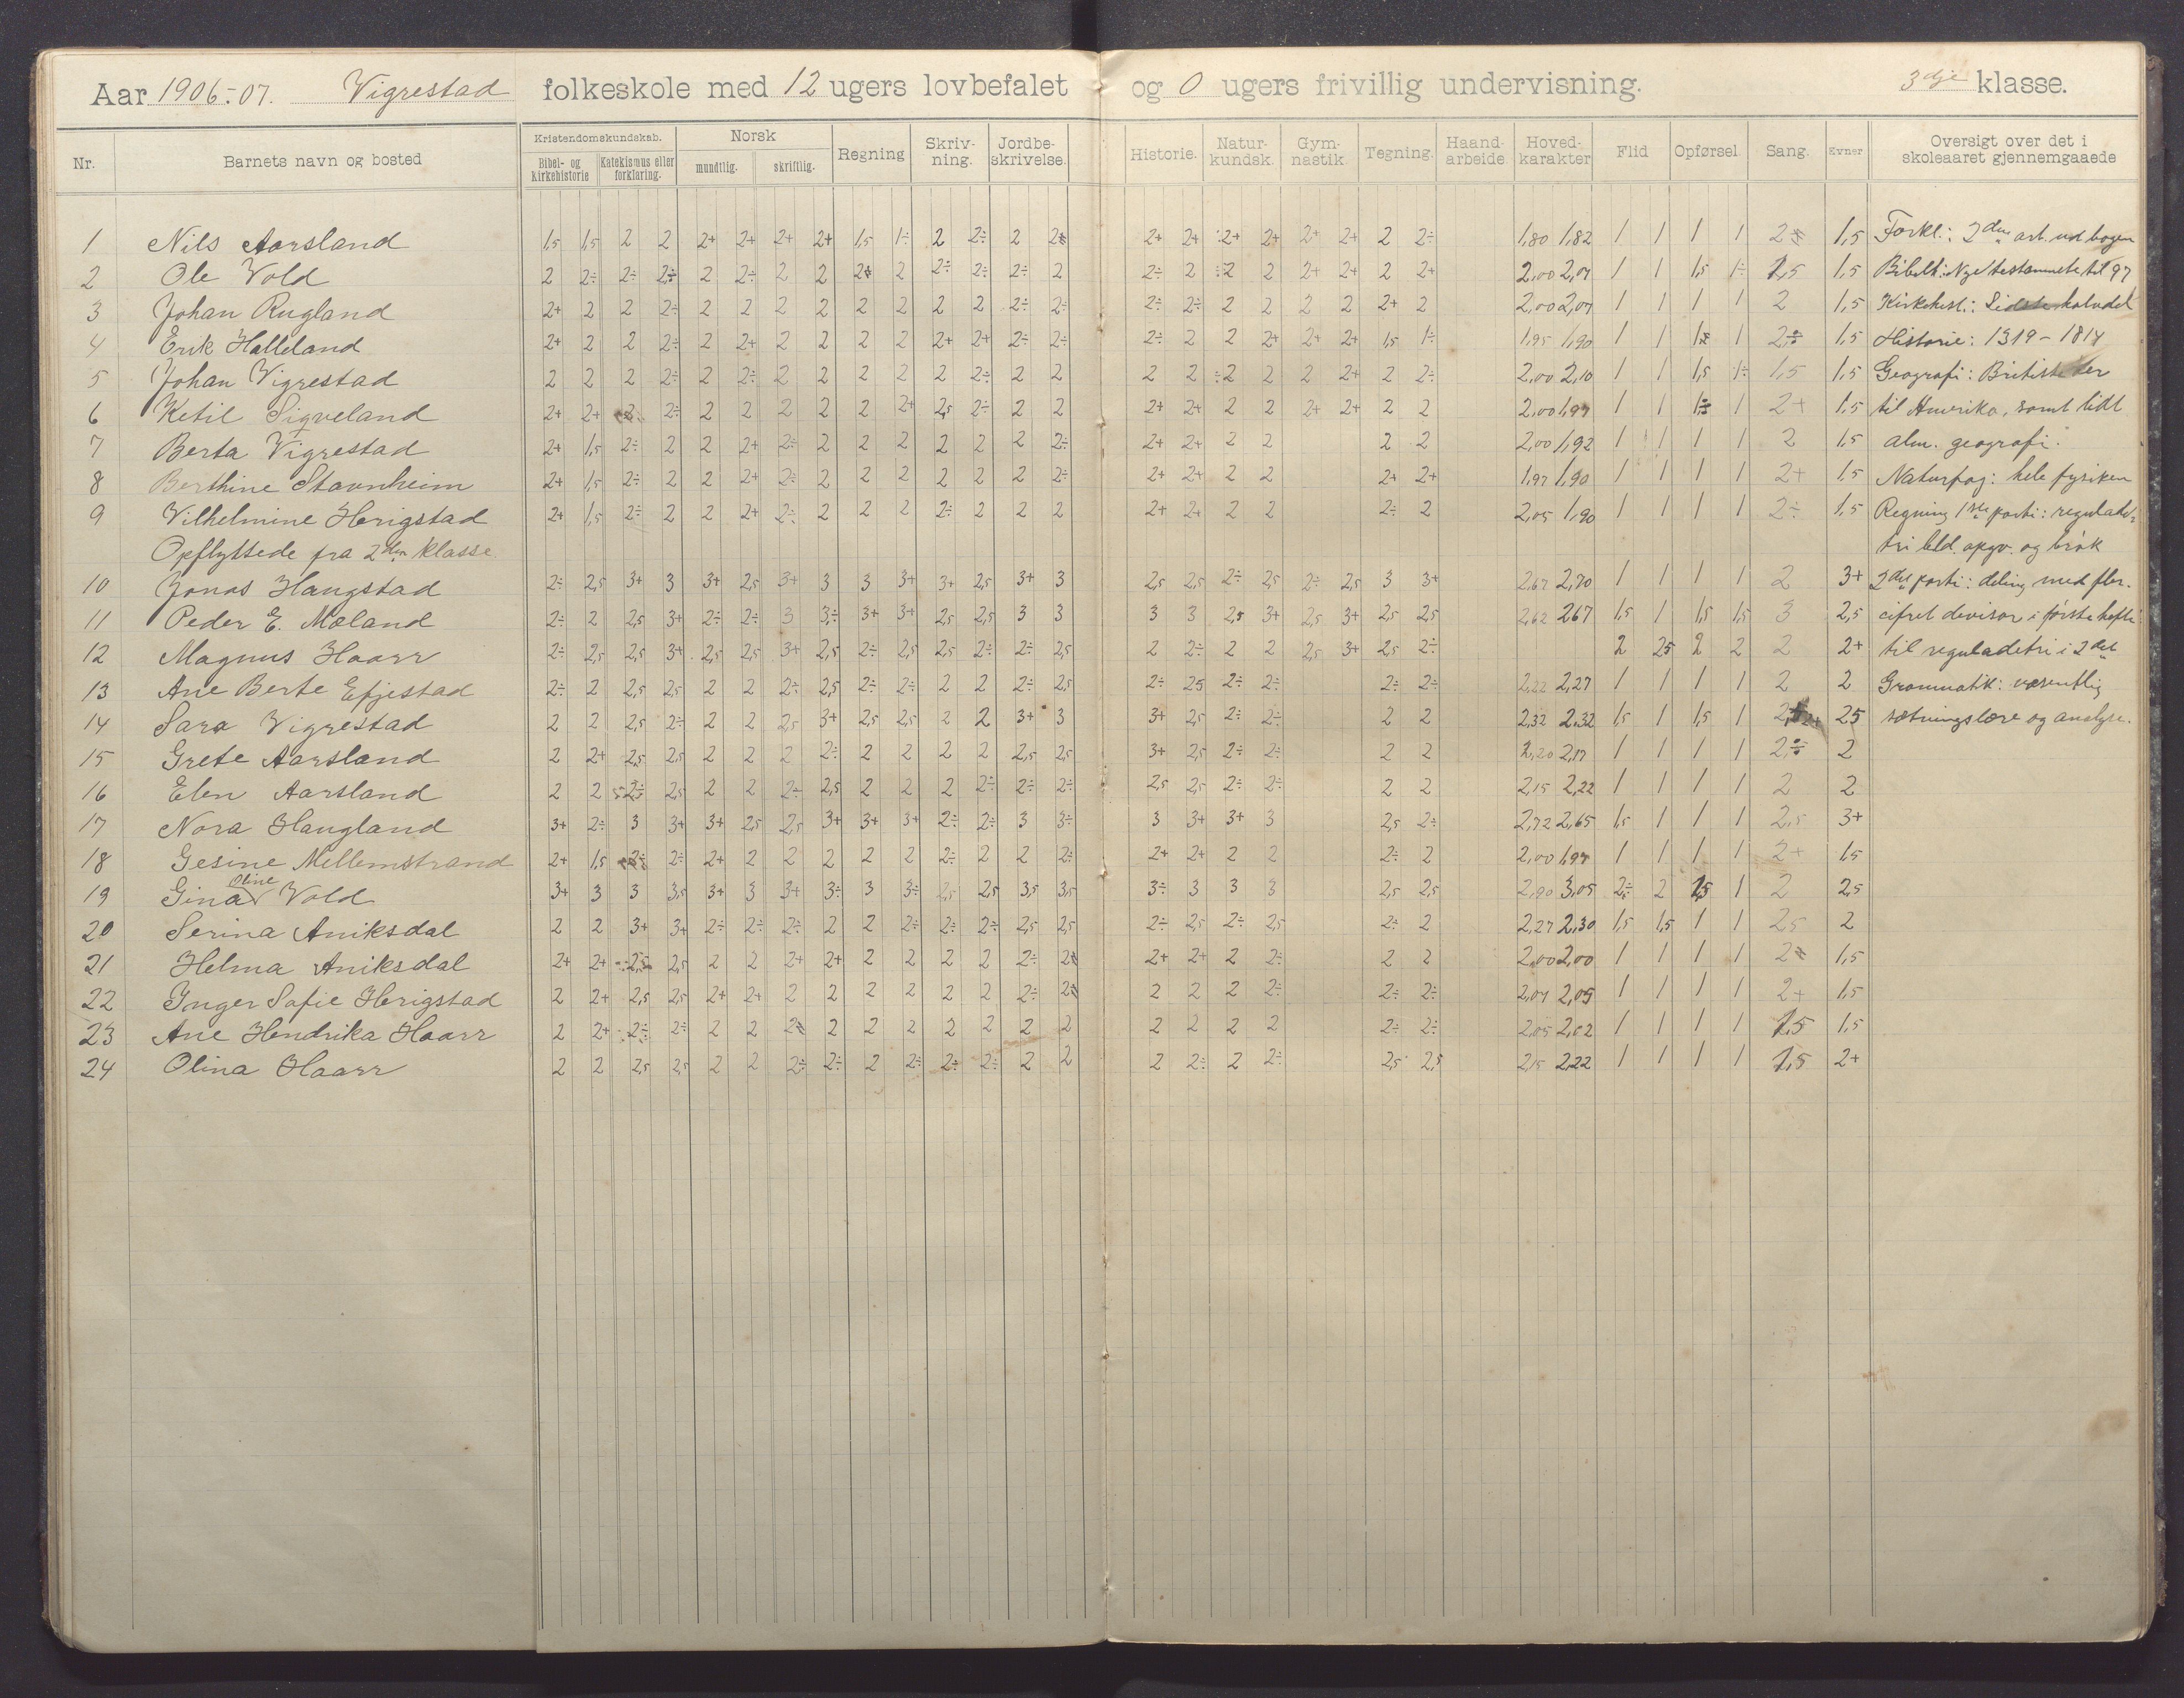 Aar 1906-07. Vigrestad folkeskole med 12 ugers lovbefalet og 0 ugers frivillig undervisning. 3dje klasse.
Nr. Barnets navn og bosted Kristendomskundskab. Bibel- og Kirkehistorie Katekismus eller forklaring. Norsk mundtlig. skriftlig. Regning Skriv-ning. Jordbe-skrivelse. Historie. Natur-kundsk. Gym-nastik. Tegning. Haand-arbeide. Hoved-karakter Flid Opførsel. Sang. Evner Oversigt over det i skoleaaret gjennemgaaede
1 Nils Aarsland 1,5 1,5 2 2 2+ 2+ 2+ 2+ 1,5 1÷ 2 2÷ 2 2+ 2+ 2+ 2+ 2+ 2+ 2+ 2 2÷ 1,80 1,82 1 1 1 1 2 1,5 Forkl.: 2den art. ud bogen
2 Ole Vold 2 2÷ 2÷ 2÷ 2 2÷ 2 2 2+ 2 2÷ 2÷ 2÷ 2 2÷ 2 2 2 2+ 2+ 2 2+ 2,00 2,07 1 1 1,5 1÷ 1,5 1,5 Bibelh.: Nye testamnete til 97
3 Johan Rugland 2+ 2 2 2÷ 2 2 2 2 2 2 2 2 2÷ 2÷ 2÷ 2÷ 2 2 2 2 2+ 2 2,00 2,07 1 1 1 1 2 1,5 Kirkehist.: Sidste halvdel
4 Erik Halleland 2+ 2 2 2÷ 2 2+ 2 2 2 2 2+ 2+ 2÷ 2÷ 2÷ 2 2 2+ 2+ 2+ 1,5 1÷ 1,95 1,90 1 1 1 1 2÷ 1,5 Historie: 1319-1814
5 Johan Vigrestad 2 2 2 2÷ 2 2÷ 2 2 2 2 2 2÷ 2 2 2 2 2 2 2 2+ 2 2÷ 2,00 2,10 1 1 1,5 1÷ 1,5 1,5 Geografi: Britiske øer
6 Ketil Sigveland 2+ 2+ 2 2÷ 2 2 2 2 2 2+ 2,5 2÷ 2 2 2+ 2+ 2 2 2+ 2+ 2 2 2,00 1,97 1 1 1÷ 1 2+ 1,5 til Amerika, samt lidt
7 Berta Vigrestad 2+ 1,5 2÷ 2 2 2+ 2÷ 2 2 2 2 2 2 2÷ 2+ 2+ 2 2 2 2 2,00 1,92 1 1 1 1 2 1,5 alm. geografi.
8 Berthine Stavnheim 2+ 1,5 2÷ 2 2 2+ 2÷ 2 2 2 2 2 2 2÷ 2+ 2+ 2 2 2+ 2+ 1,97 1,90 1 1 1 1 2+ 1,5 Naturfag: hele fysiken
9 Vilhelmine Herigstad 2+ 1,5 2÷ 2 2 2+ 2÷ 2 2 2 2÷ 2 2 2 2+ 2+ 2 2 2÷ 2 2,05 1,90 1 1 1 1 2÷ 1,5 Regning 1ste parti: regulade-
Opflyttede fra 2den klasse. tri bld. opgv. og brøk
10 Jonas Haugstad 2÷ 2,5 3+ 3 3+ 2,5 3+ 3 3 3+ 3+ 2,5 3+ 3 2,5 2,5 2÷ 2,5 2÷ 2,5 3 3+ 2,67 2,70 1 1 1 1 2 3+ 2det parti: deling med fler-
11 Peder E. Mæland 2÷ 2 2,5 3+ 2÷ 2÷ 3 3÷ 3+ 3+ 2,5 2,5 3 3 3 3 2,5 3+ 2,5 3+ 2,5 2,5 2,62 2,67 1,5 1 1,5 1,5 3 2,5 cifret devisor i første hefte
12 Magnus Haarr 2÷ 2,5 2,5 3+ 2,5 2,5 3+ 2,5 2÷ 2,5 2,5 2÷ 2÷ 2,5 2 2÷ 2 2 2,5 3+ 2,5 2÷ 2 25 2 2 2 2+ til reguladetri i 2det
13 Ane Berte Efjestad 2÷ 2 2,5 2,5 2 2 2÷ 2,5 2÷ 2÷ 2 2 2÷ 2,5 2÷ 25 2÷ 2÷ 2÷ 2÷ 2,22 2,27 1 1 1 1 2 2 Grammatik: væsentlig
14 Sara Vigrestad 2 2 2,5 2÷ 2 2 2,5 3+ 2,5 2,5 2 2 3+ 3 3+ 2,5 2÷ 2÷ 2 2 2,32 2,32 1,5 1 1,5 1 2+ 25 sætningslære og analyse.
15 Grete Aarsland 2 2+ 2,5 2,5 2 2 2 2÷ 2 2 2 2 2,5 2,5 3+ 2,5 2÷ 2÷ 2 2 2,20 2,17 1 1 1 1 2÷ 2
16 Elen Aarsland 2 2 2÷ 2,5 2 2 2÷ 2,5 2 2 2 2÷ 2÷ 2÷ 2,5 2,5 2÷ 2÷ 2 2 2,15 2,22 1 1 1 1 2 2
17 Nora Haugland 3+ 2÷ 3 3+ 3+ 2,5 2,5 3+ 3+ 3+ 2÷ 2÷ 3 3÷ 3 3+ 3+ 3 2,5 2÷ 2,72 2,65 1,5 1 1 1 2,5 3+
18 Gesine Mellemstrand 2+ 1,5 2÷ 2÷ 2+ 2 2 2 2 2 2÷ 2 2 2÷ 2+ 2+ 2 2 2÷ 2 2,00 1,97 1 1 1 1 2+ 1,5
19 Gina Oline Vold 3+ 3 3 3,5 3+ 3 3+ 3÷ 3 3÷ 2,5 2,5 3,5 3,5 3÷ 3 3 3 2,5 2,5 2,90 3,05 2÷ 2 1,5 1 2 2,5
20 Serina Aniksdal 2 2 3+ 3+ 2÷ 2÷ 2÷ 2 2 2÷ 2÷ 2÷ 2,5 2,5 2÷ 2,5 2÷ 2,5 2÷ 2 2,27 2,30 1,5 1,5 1 1 25 2
21 Helma Aniksdal 2+ 2+ 2,5 2,5 2 2 2+ 2+ 2 2 2 2 2÷ 2 2+ 2+ 2 2÷ 2 2 2,00 2,00 1 1 1 1 2 1,5
22 Inger Sofie Herigstad 2 2+ 2,5 2,5 2+ 2+ 2 2 2 2 2 2 2÷ 2 2 2 2 2÷ 2÷ 2÷ 2,07 2,05 1 1 1 1 2+ 1,5
23 Ane Hendrika Haarr 2 2+ 2÷ 2÷ 2 2 2 2 2 2 2 2 2 2 2 2 2 2 2÷ 2÷ 2,05 2,02 1 1 1 1 1,5 1,5
24 Olina Haarr 2 2 2,5 2,5 2 2 2÷ 2÷ 2 2÷ 2÷ 2÷ 2 2 2 2÷ 2 2÷ 2,5 2,5 2,15 2,22 1 1 1 1 1,5 2+